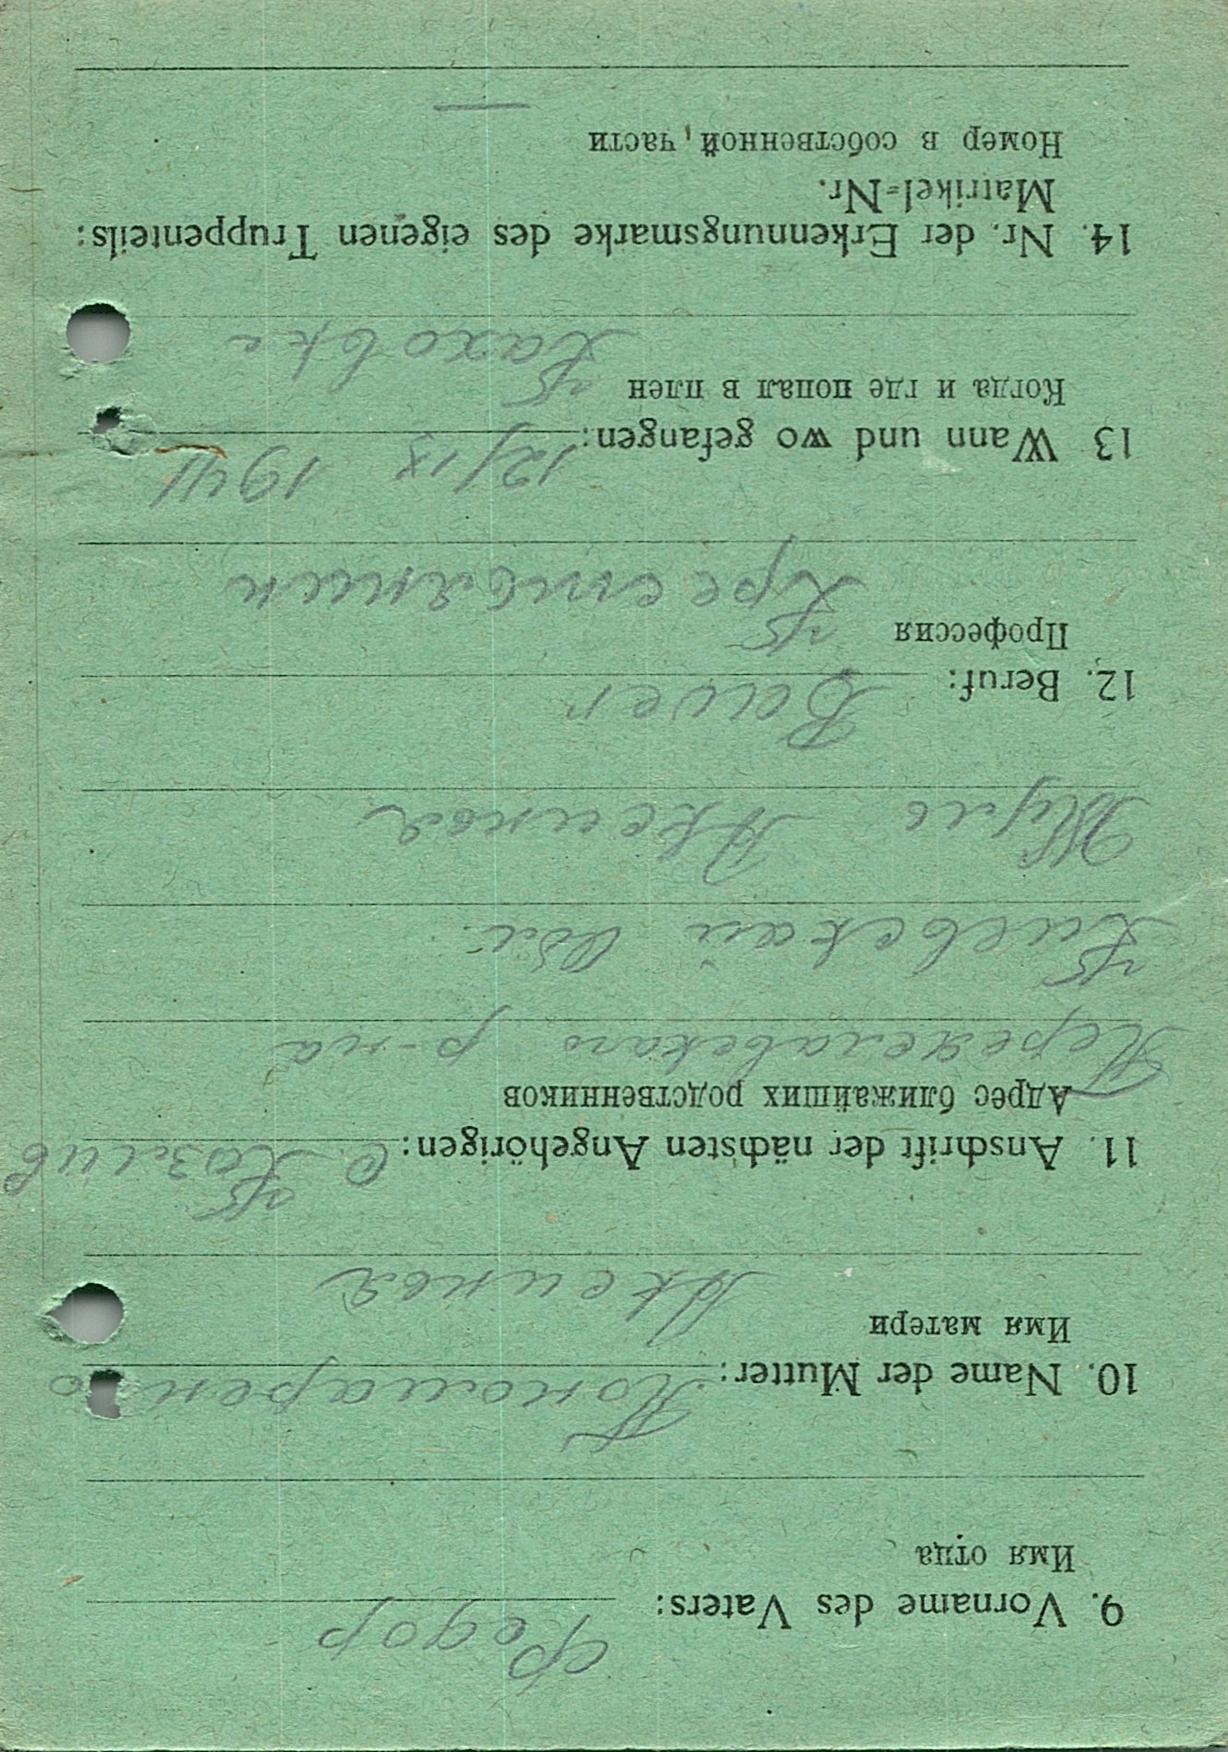 9. Vorname des Vaters: Федор
Имя отца
10. Name der Mutter: Пономаренко
Имя матери
Аксиньа
11. Anschrift der nächsten Angehörigen: С. Козлив
Адрес ближайших родственников
Переяславскаго р-на
Киевскай Обл.
Аксиньа
12. Beruf: Bauer
Профессия
Крестьянин
13 Wann und wo gefangen: 12/IX 1941
Когда и где попал в плен
Каховка
14. Nr. der Erkennungsmarke des eigenen Truppenteils:
Matrikel-Nr.
Номер в собственной части
—